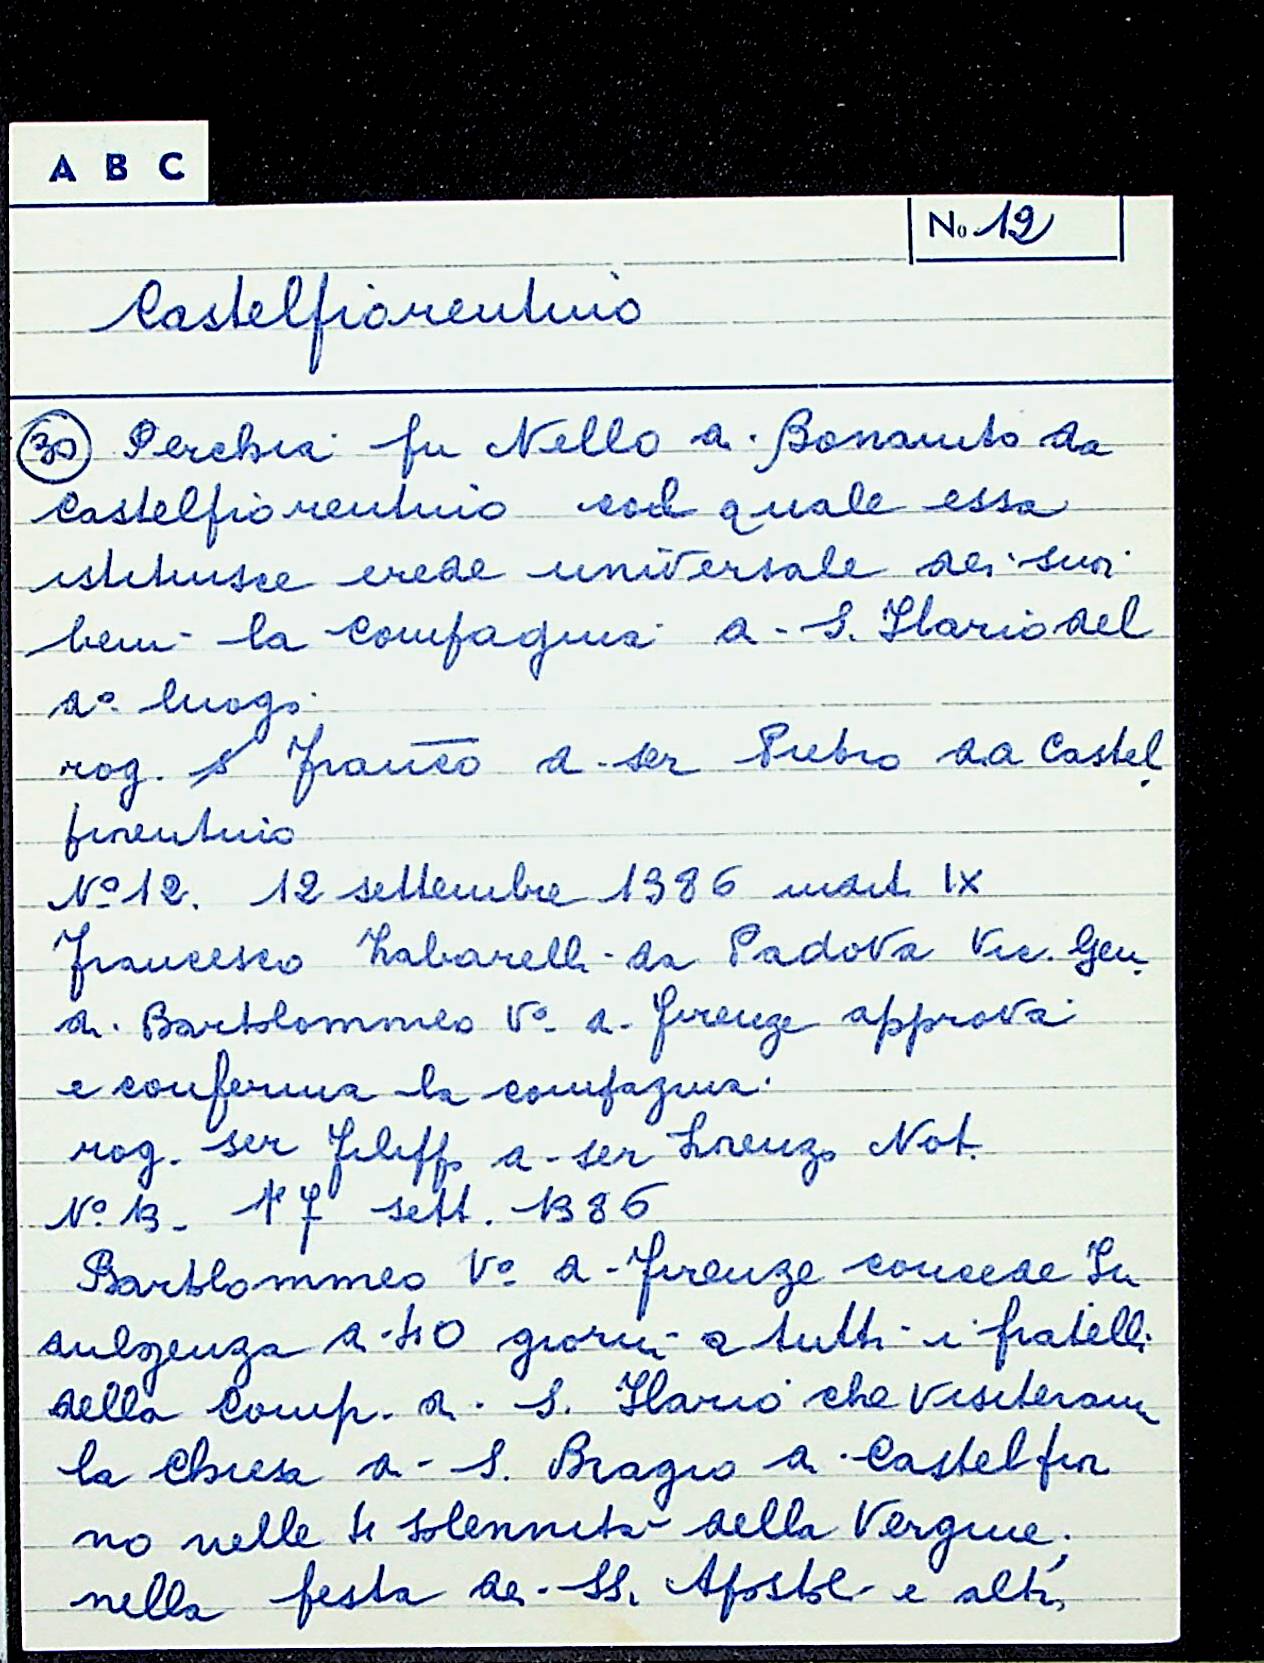 A B C
No 12
Castelfiorentino
30 Perchia fu Nello di Bonaiuto da
Castelfiorentino col quale essa
istituisce erede universale dei suoi
beni la Compagnia di S. Ilario del
do luogo
rog. s Franco di ser Pietro da Castel
fiorentino
No 12. 12 settembre 1386 indit. IX
Francesco Zabarelli da Padova Vic. Gen.
di Bartolommeo Vo di Firenze approva
e conferma la compagnia
rog. ser Filippo di ser Lorenzo Not.
No 13. 17 sett. 1386
Bartolommeo Vo di Firenze concede In
dulgenza di 40 giorni a tutti i fratelli
della Comp. di S. Ilario che visiteranno
la Chiesa di S. Biagio di Castelfior
no nelle 4 solennità della Vergine,
nella festa dei SS. Apostoli e altri,